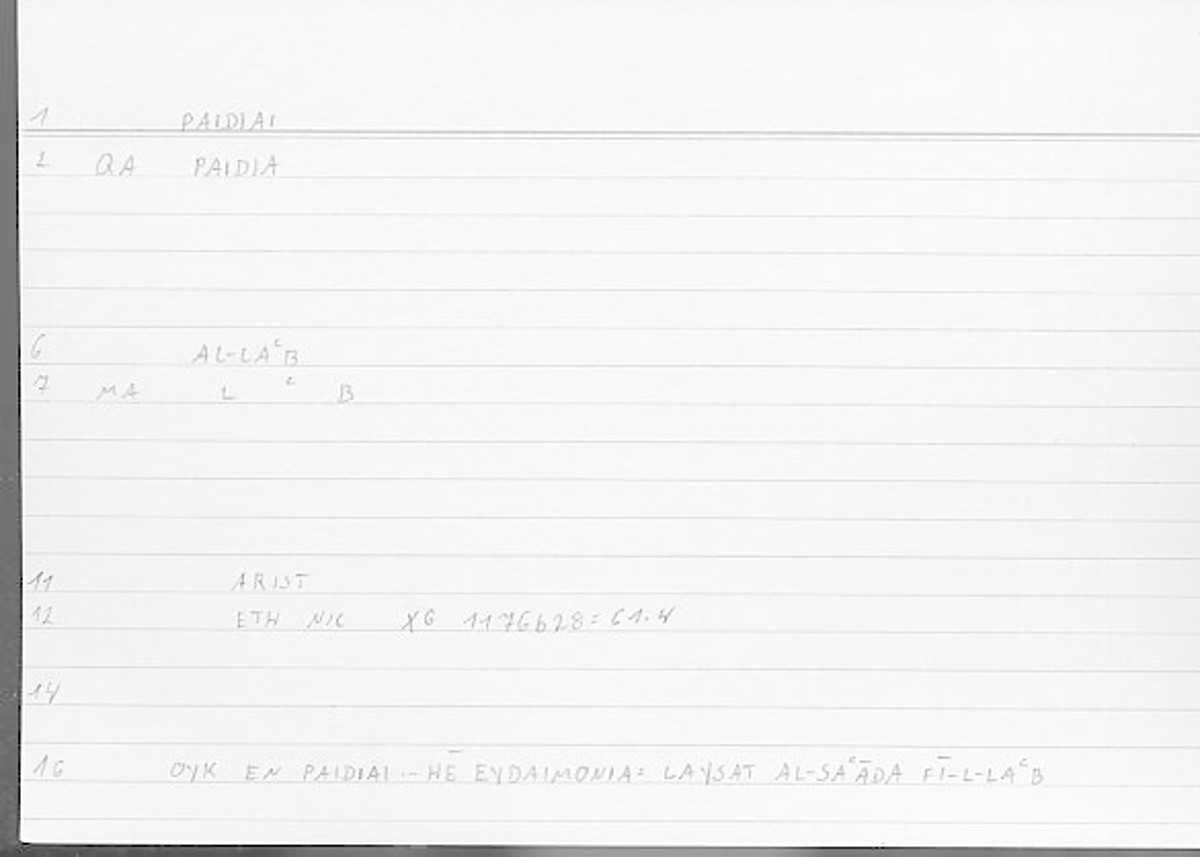 1 PAIDIAI
2 QA PAIDIA
6 AL-LAᶜB
7 MA L ᶜ B
11 ARIST
12 ETH NIC X6 1176b28=61.4
14
16 OYK EN PAIDIAI ... HĒ EYDAIMONIA= LAYSAT AL-SAᶜĀDA FĪ-L-LAᶜB